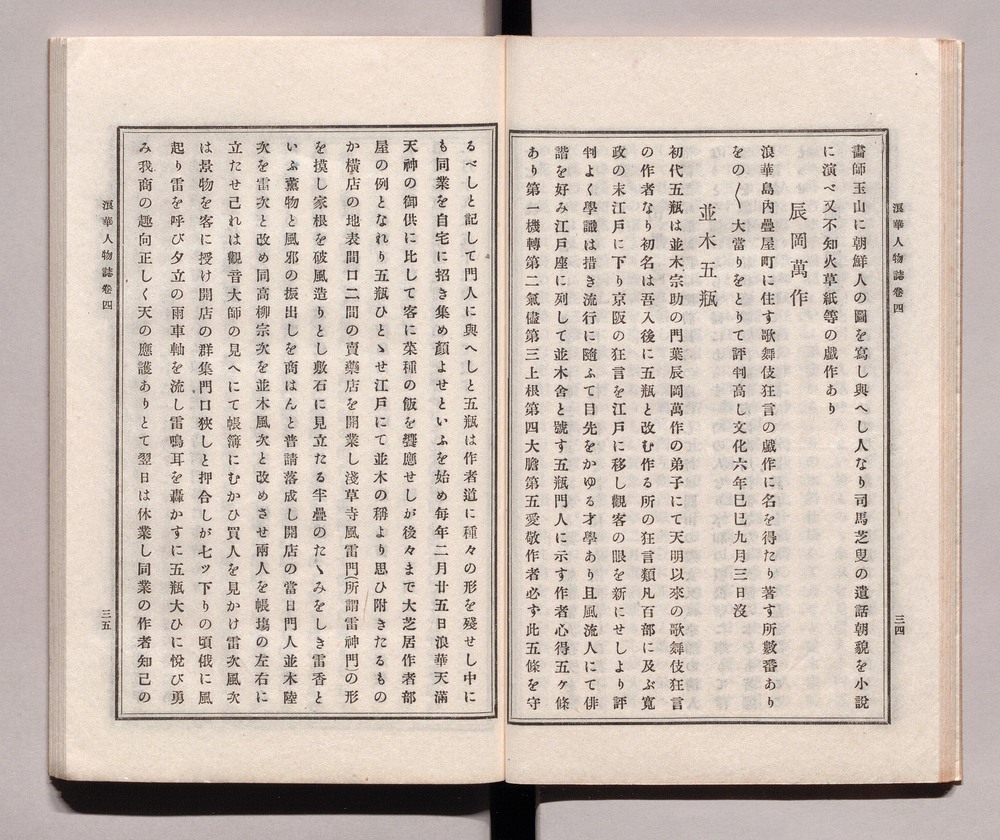 浪華人物誌卷四
三四
畵師玉山に朝鮮人の圖を寫し與へし人なり司馬芝叟の遺話朝貌を小說
に演べ又不知火草紙等の戲作あり
辰岡萬作
浪華島內疊屋町に住す歌舞伎狂言の戲作に名を得たり著す所數番あり
をの〱大當りをとりて評判高し文化六年巳巳九月三日沒
並木五瓶
初代五瓶は並木宗助の門葉辰岡萬作の弟子にて天明以來の歌舞伎狂言
の作者なり初名は吾八後に五瓶と改む作る所の狂言類凡百部に及ぶ寬
政の末江戶に下り京阪の狂言を江戶に移し觀客の眼を新にせしより評
判よく學識は措き流行に隨ふて目先をかゆる才學あり且風流人にて俳
諧を好み江戶座に列して並木舍と號す五瓶門人に示す作者心得五ヶ條
あり第一機轉第二氣儘第三上根第四大膽第五愛敬作者必す此五條を守
るべしと記して門人に與へしと五瓶は作者道に種々の形を殘せし中に
も同業を自宅に招き集め顏よせといふを始め每年二月廿五日浪華天滿
天神の御供に比して客に菜種の飯を饗應せしが後々まで大芝居作者部
屋の例となれり五瓶ひとゝせ江戶にて並木の稱より思ひ附きたるもの
か橫店の地表間口二間の賣藥店を開業し淺草寺風雷門(所謂雷神門)の形
を摸し家根を破風造りとし敷石に見立たる半疊のたゝみをしき雷香と
いふ薰物と風邪の振出しを商はんと普請落成し開店の當日門人並木陸
次を雷次と改め同高柳宗次を並木風次と改めさせ兩人を帳塲の左右に
立たせ己れは觀音大師の見へにて帳簿にむかひ買人を見かけ雷次風次
は景物を客に授け開店の群集門口狹しと押合しが七ッ下りの頃俄に風
起り雷を呼び夕立の雨車軸を流し雷鳴耳を轟かすに五瓶大ひに悅び勇
み我商の趣向正しく天の應護ありとて翌日は休業し同業の作者知己の
浪華人物誌卷四
三五